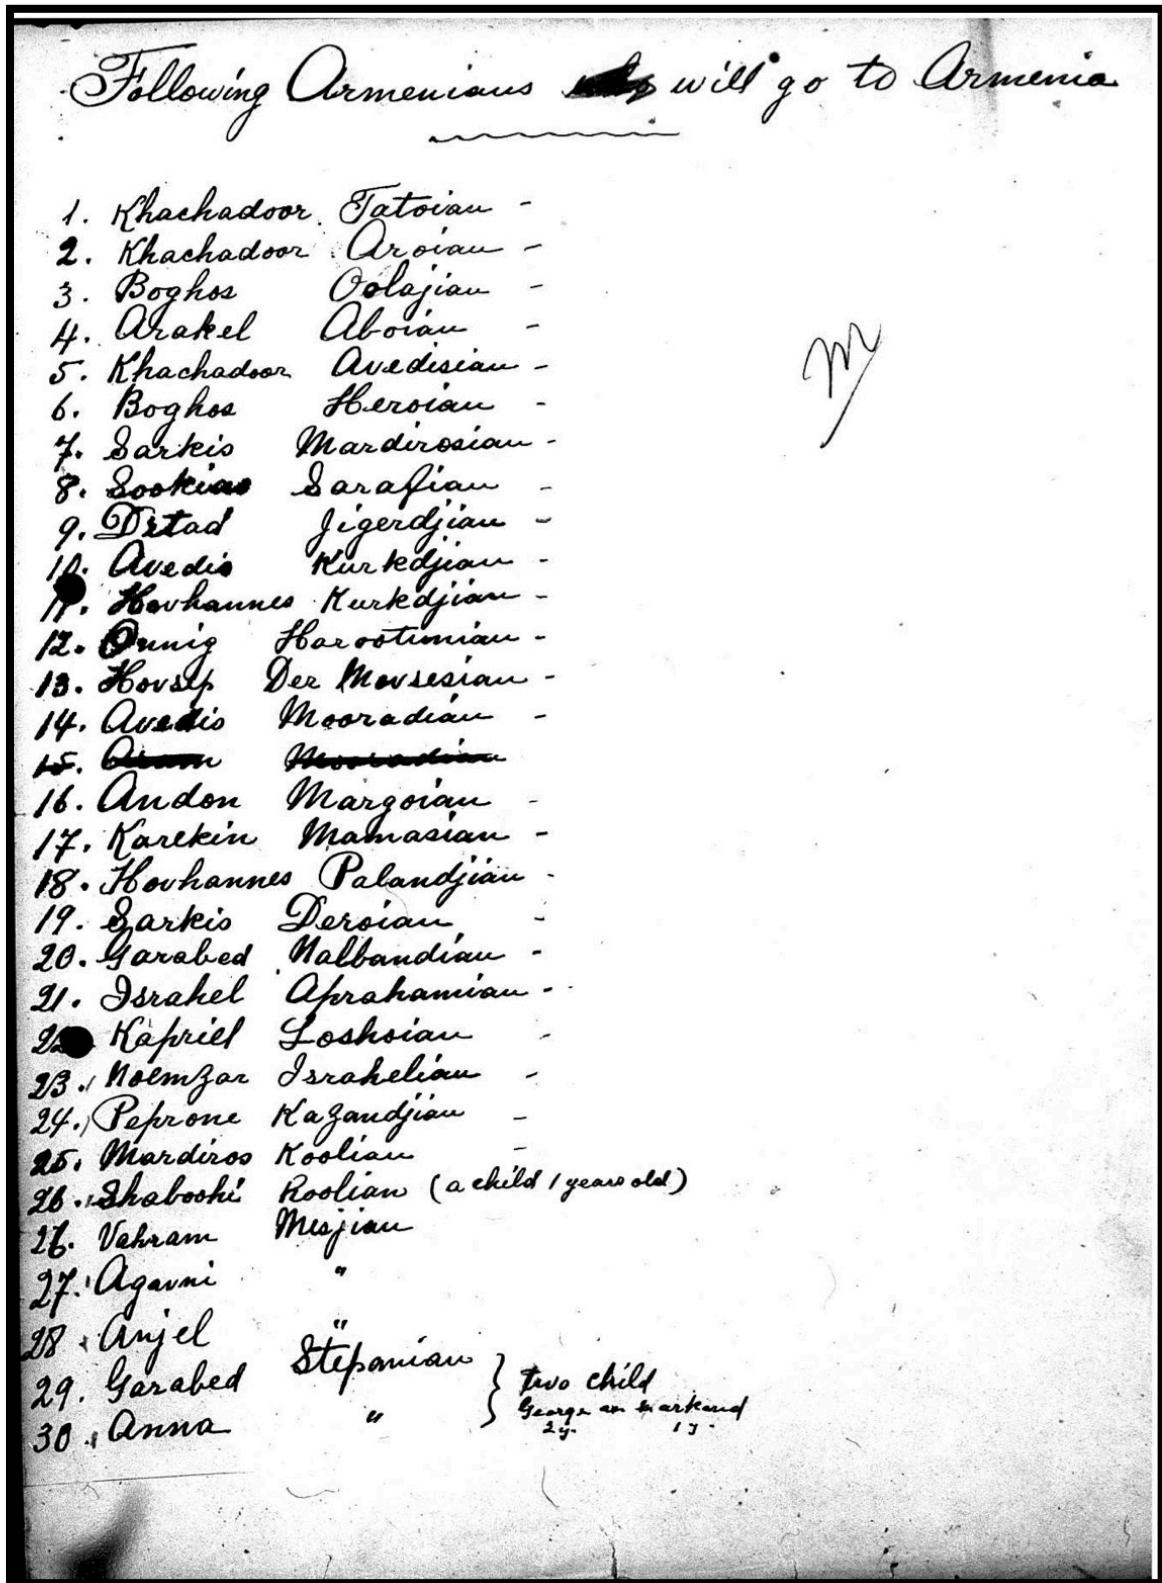 Following Armenians will go to Armenia
1. Khachadoor Tatoian -
2. Khachadoor Aroian -
3. Boghos Oolajian -
4. Arakel Aboian -
5. Khachadoor Avedisian -
6. Boghos Heroian -
7. Sarkis Mardirosian -
8. Sookias Sarafian -
9. Drtad Jigerdjian -
10. Avedis Kurkdjian -
11. Hovhannes Kurkdjian -
12. Onnig Harootunian -
13. Hovsep Der Movsesian -
14. Avedis Mooradian -
15. Aram Mooradian
16. Andon Margoian -
17. Karekin Mamasian -
18. Hovhannes Palandjian -
19. Sarkis Deroian -
20. Garabed Nalbandian -
21. Israhel Aprahamian -
22 Kapriel Loshoian -
23. Noemzar Israhelian -
24. Peprone Kazandjian -
25. Mardiros Koolian -
26. Shabooshi Koolian (a child 1 years old)
26. Vahram Mesjian
27. Agavni "
28. Anjel "
29. Garabed Stepanian } two child
George an
30. Anna "
2 y. 1 y.